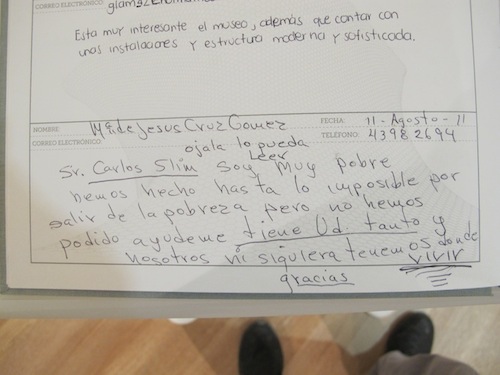 CORREO ELECTRÓNICO
Esta muy interesante el museo, además que contar con
unas instalaciones y estructura moderna y sofisticada.
NOMBRE: Ma de Jesus Cruz Gomez FECHA: 11 - Agosto - 11
CORREO ELECTRÓNICO: ojala lo pueda TELÉFONO: 43982694
Leer
Sr. Carlos Slim Soy muy pobre
hemos hecho hasta lo imposible por
salir de la pobreza pero no hemos
podido ayudeme tiene Ud. tanto y
nosotros ni siquiera tenemos donde
vivir
gracias